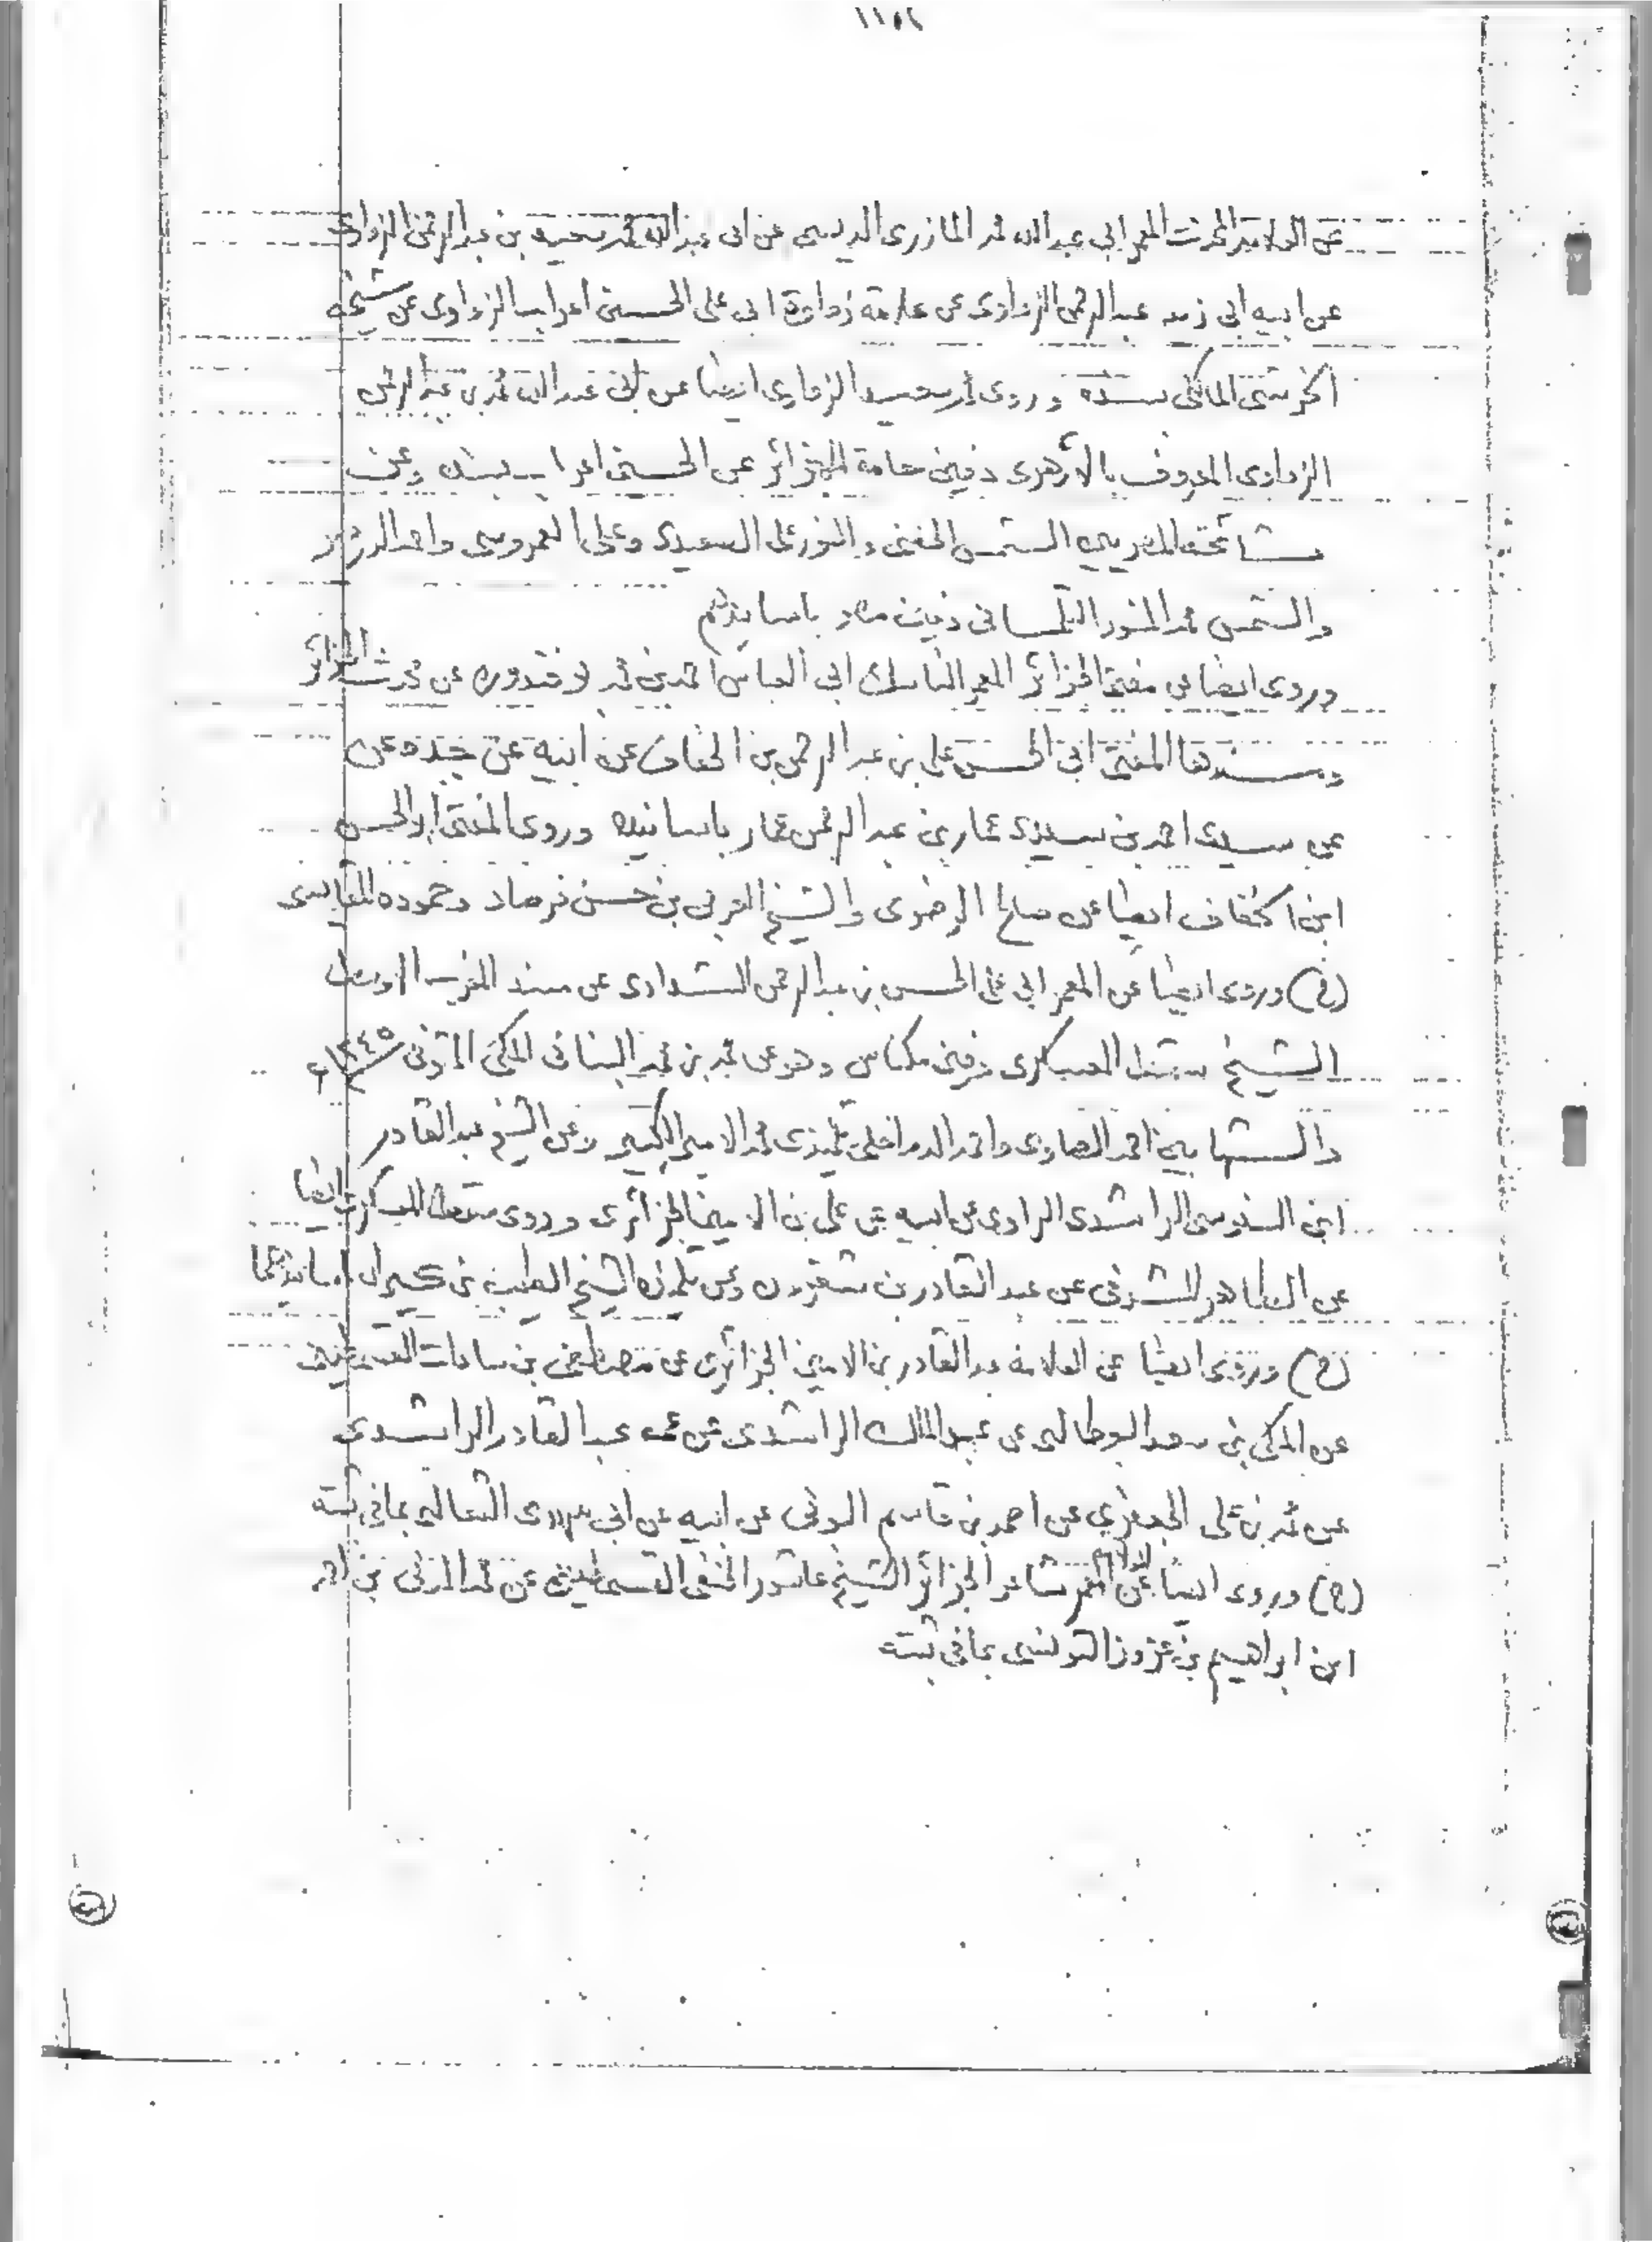 ١١٥٢
عن العلامة المحدث المعمر ابي عبد الله محمد المازري الديسي عن ابي عبد الله محمد سعيد بن عبد الرحمن الزواوي
عن ابيه ابي زيد عبد الرحمن الزواوي عن علامة زواوة ابي علي الحسين اعراب الزواوي عن شيخه
الخرشي المالكي بسنده وروى محمد سعيد الزواوي ايضا عن ابي عبد الله محمد بن عبد الرحمن
الزواوي المعروف بالأزهري دفين حامة الجزائر عن الحسين اعراب بسنده وعن
مشائخه المصريين الشمس الحفني والنور علي الصعيدي وعلي العمروسي واحمد الدردير
والشمس محمد المنور التلمساني دفين مصر باسانيدهم
وروى ايضا عن مفتي الجزائر المعمر الناسك ابي العباس احمد بن محمد بو قندورة عن محدث الجزائر
ومسندها المفتي ابي الحسن علي بن عبد الرحمن بن الحفاف عن ابيه عن جده عن
عن سيدي احمد بن سيدي عمار بن عبد الرحمن عمار باسانيده وروى المفتي ابو الحسن
ابن الحفاف ايضا عن صالح الرضوي والشيخ العربي بن حسن فرصاد وحموده المقايسي
(ح) وروى ايضا عن المعمر ابي علي الحسن بن عبد الرحمن الشدادي عن مسند المغرب الاوسط
الشيخ سقط العسكري دفين مكناس وهو عن محمد بن محمد البناني المكي المتوفى ١٢٤٥
والشهابين احمد الصاوي واحمد الدمياطي تلميذي محمد الامير الكبير وعن الشيخ عبد القادر
ابن السنوسي الراشدي الراوي عن ابيه عن علي بن الامين الجزائري وروى سقط العسكري ايضا
عن الطاهر المشرفي عن عبد القادر بن شقرون وعن تلميذه الشيخ الطيب بن كيران باسانيدهما
(ح) وروى ايضا عن العلامة عبد القادر بن الامين الجزائري عن مصطفى بن سادات القسنطيني
عن المكي بن سعد البوطالبي عن عبد المالك الراشدي عن عمه عبد القادر الراشدي
عن محمد بن علي الجعفري عن احمد بن قاسم البوني عن ابيه عن ابي مهدي الثعالبي بما في ثبته
(ح) وروى ايضا عن المعمر شاعر الجزائر الشيخ عاشور الخنقي القسنطيني عن محمد المدني بن احمد
ابن ابراهيم بن عزوز التونسي بما في ثبته